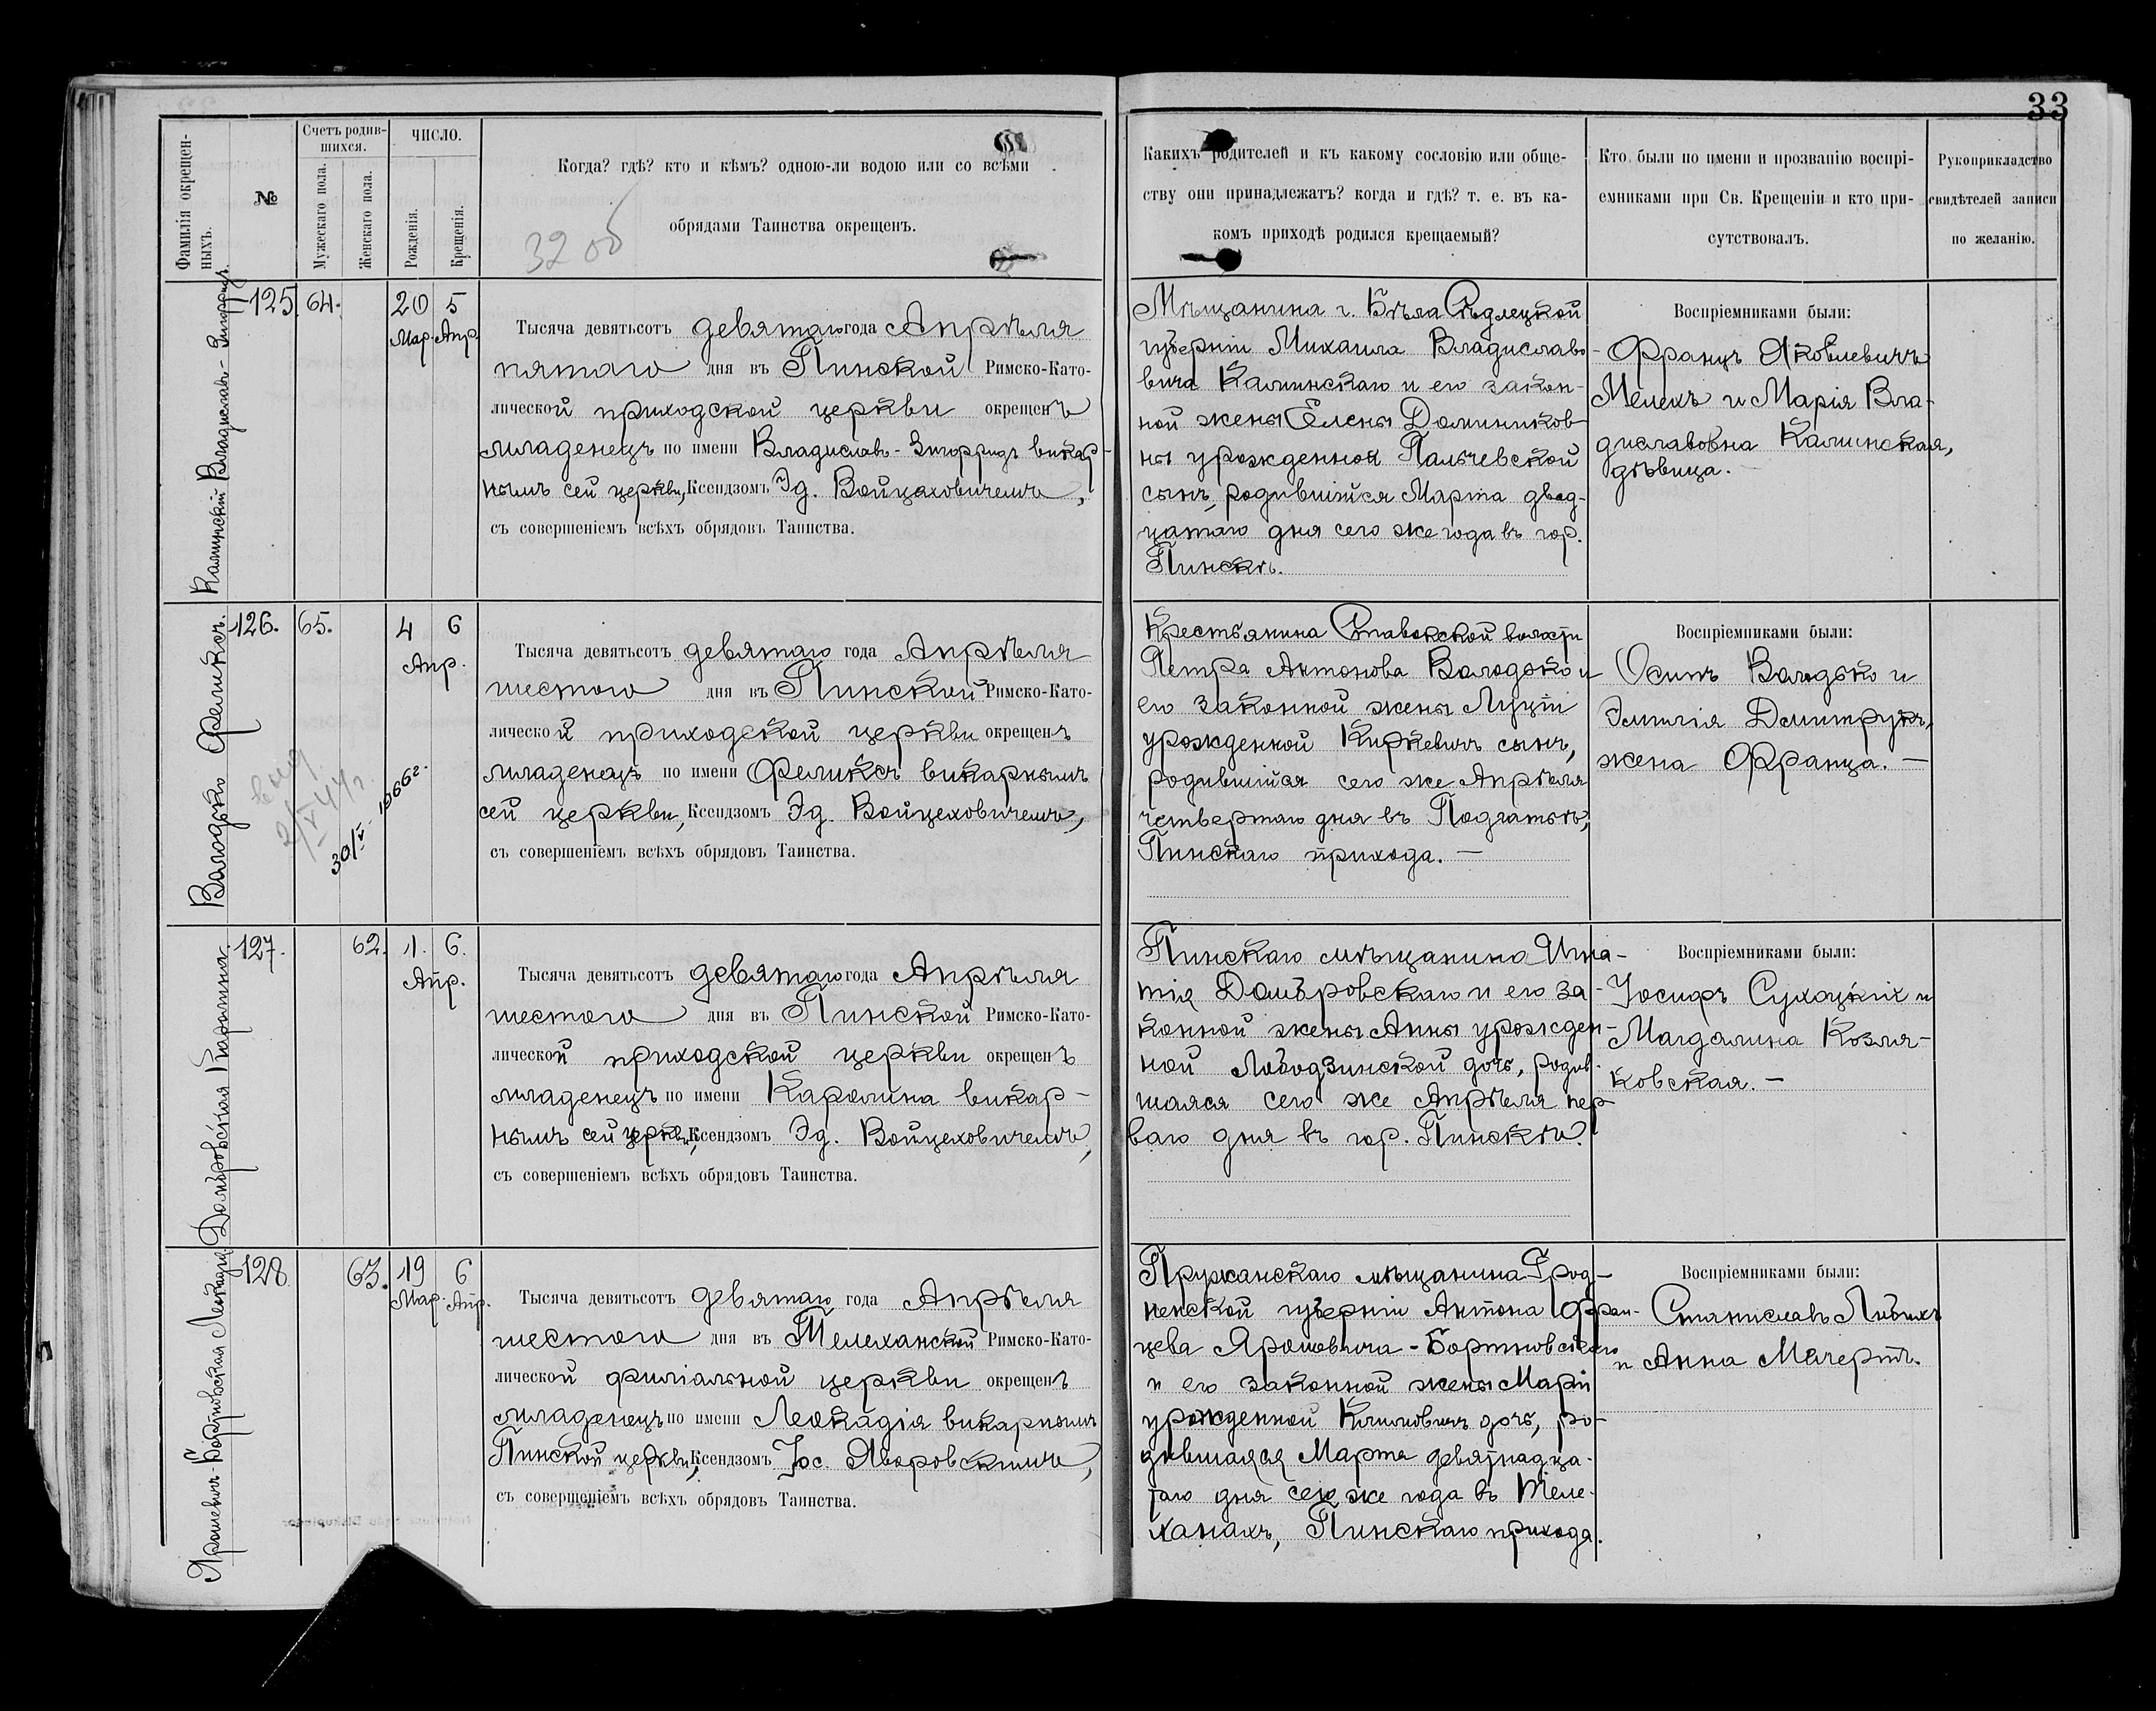 33
Фамилія окрещен-
ныхъ.
№
Счетъ родив-
шихся.
Мужескаго пола.
Женскаго пола.
ЧИСЛО.
Рожденія.
Крещенія.
Когда? гдѣ? кто и кѣмъ? одною-ли водою или со всѣми
обрядами Таинства окрещенъ.
32 об
Какихъ родителей и къ какому сословію или обще-
ству они принадлежатъ? когда и гдѣ? т. е. въ ка-
комъ приходѣ родился крещаемый?
Кто были по имени и прозванію воспрі-
емниками при Св. Крещеніи и кто при-
сутствовалъ.
Рукоприкладство
свидѣтелей записи
по желанію.
Калинскій Владиславъ-Зигфридъ.
125 64. 20 5
Мар. Апр.
Тысяча девятьсотъ девятаго года Апрѣля
пятаго дня въ Пинской Римско-Като-
лической приходской церкви окрещенъ
младенецъ по имени Владиславъ-Зигфридъ викар-
нымъ сей церкви, Ксендзомъ Эд. Войцеховичемъ,
съ совершеніемъ всѣхъ обрядовъ Таинства.
Мѣщанина г. Бѣла Сѣдлецкой
губерніи Михаила Владиславо-
вича Калинскаго и его закон-
ной жены Елены Домиников-
ны урожденной Пальчевской
сынъ, родившійся Марта двад-
цатаго дня сего же года въ гор.
Пинскѣ.
Воспріемниками были:
Францъ Яковлевичъ
Мелехъ и Марія Вла-
диславовна Калинская,
дѣвица.
Володько Феликсъ.
126. 65. 4 6
Апр.
30/V 1966г.
Тысяча девятьсотъ девятаго года Апрѣля
шестого дня въ Пинской Римско-Като-
лической приходской церкви окрещенъ
младенецъ по имени Феликсъ викарнымъ
сей церкви, Ксендзомъ Эд. Войцеховичемъ,
съ совершеніемъ всѣхъ обрядовъ Таинства.
Крестьянина Ставокской волости
Петра Антонова Володько и
его законной жены Луціи
урожденной Киркевичъ сынъ,
родившійся сего же Апрѣля
четвертаго дня въ
Пинскаго прихода. —
Воспріемниками были:
Осипъ Володько и
Эмилія Дмитрукъ,
жена Франца. —
Домбровская Каролина.
127. 62. 1. 6.
Апр.
Тысяча девятьсотъ девятаго года Апрѣля
шестого дня въ Пинской Римско-Като-
лической приходской церкви окрещенъ
младенецъ по имени Каролина викар-
нымъ сей церкви, Ксендзомъ Эд. Войцеховичемъ,
съ совершеніемъ всѣхъ обрядовъ Таинства.
Пинскаго мѣщанина Игна-
тія Домбровскаго и его за-
конной жены Анны урожден-
ной Лободзинской дочь, родив-
шаяся сего же Апрѣля пер-
ваго дня въ гор. Пинскѣ.
Воспріемниками были:
Іосифъ и
Магдалина Козля-
ковская. —
Яромевичъ-Бортновская Леокадія
128. 63. 19 6
Мар. Апр.
Тысяча девятьсотъ девятаго года Апрѣля
шестого дня въ Телеханской Римско-Като-
лической филіальной церкви окрещенъ
младенецъ по имени Леокадія викарнымъ
Пинской церкви, Ксендзомъ Іос. Яворовскимъ,
съ совершеніемъ всѣхъ обрядовъ Таинства.
Пружанскаго мѣщанина Грод-
ненской губерніи Антона Фран-
цева Яромовича-Бортновскаго
и его законной жены Маріи
урожденной Климовичъ дочь, ро-
дившаяся Марта девятнадца-
таго дня сего же года въ Теле-
ханахъ, Пинскаго прихода.
Воспріемниками были:
Станиславъ Либихъ
и Анна Мачертъ.